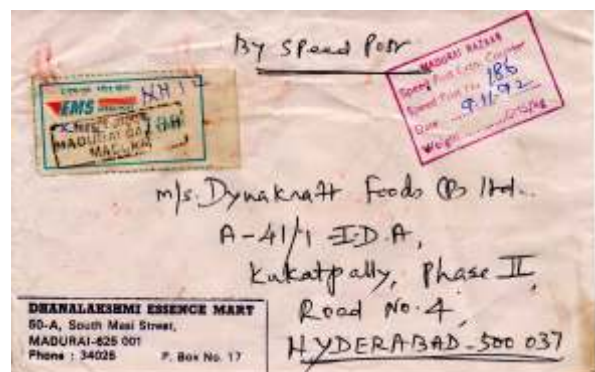 By Speed Post
MADURAI BAZAAR
Speed Post Extn. Counter
Speed Post No. 186
Date 9.11.92
Weight
EMS
MADURAI
M/s. Dynakraft Foods (P) ltd..
A-41/1 I.D.A,
Kukatpally, Phase II,
Road No. 4,
HYDERABAD-500 037
DHANALAKSHMI ESSENCE MART
50-A, South Masi Street,
MADURAI-625 001
Phone : 34026 P. Box No. 17